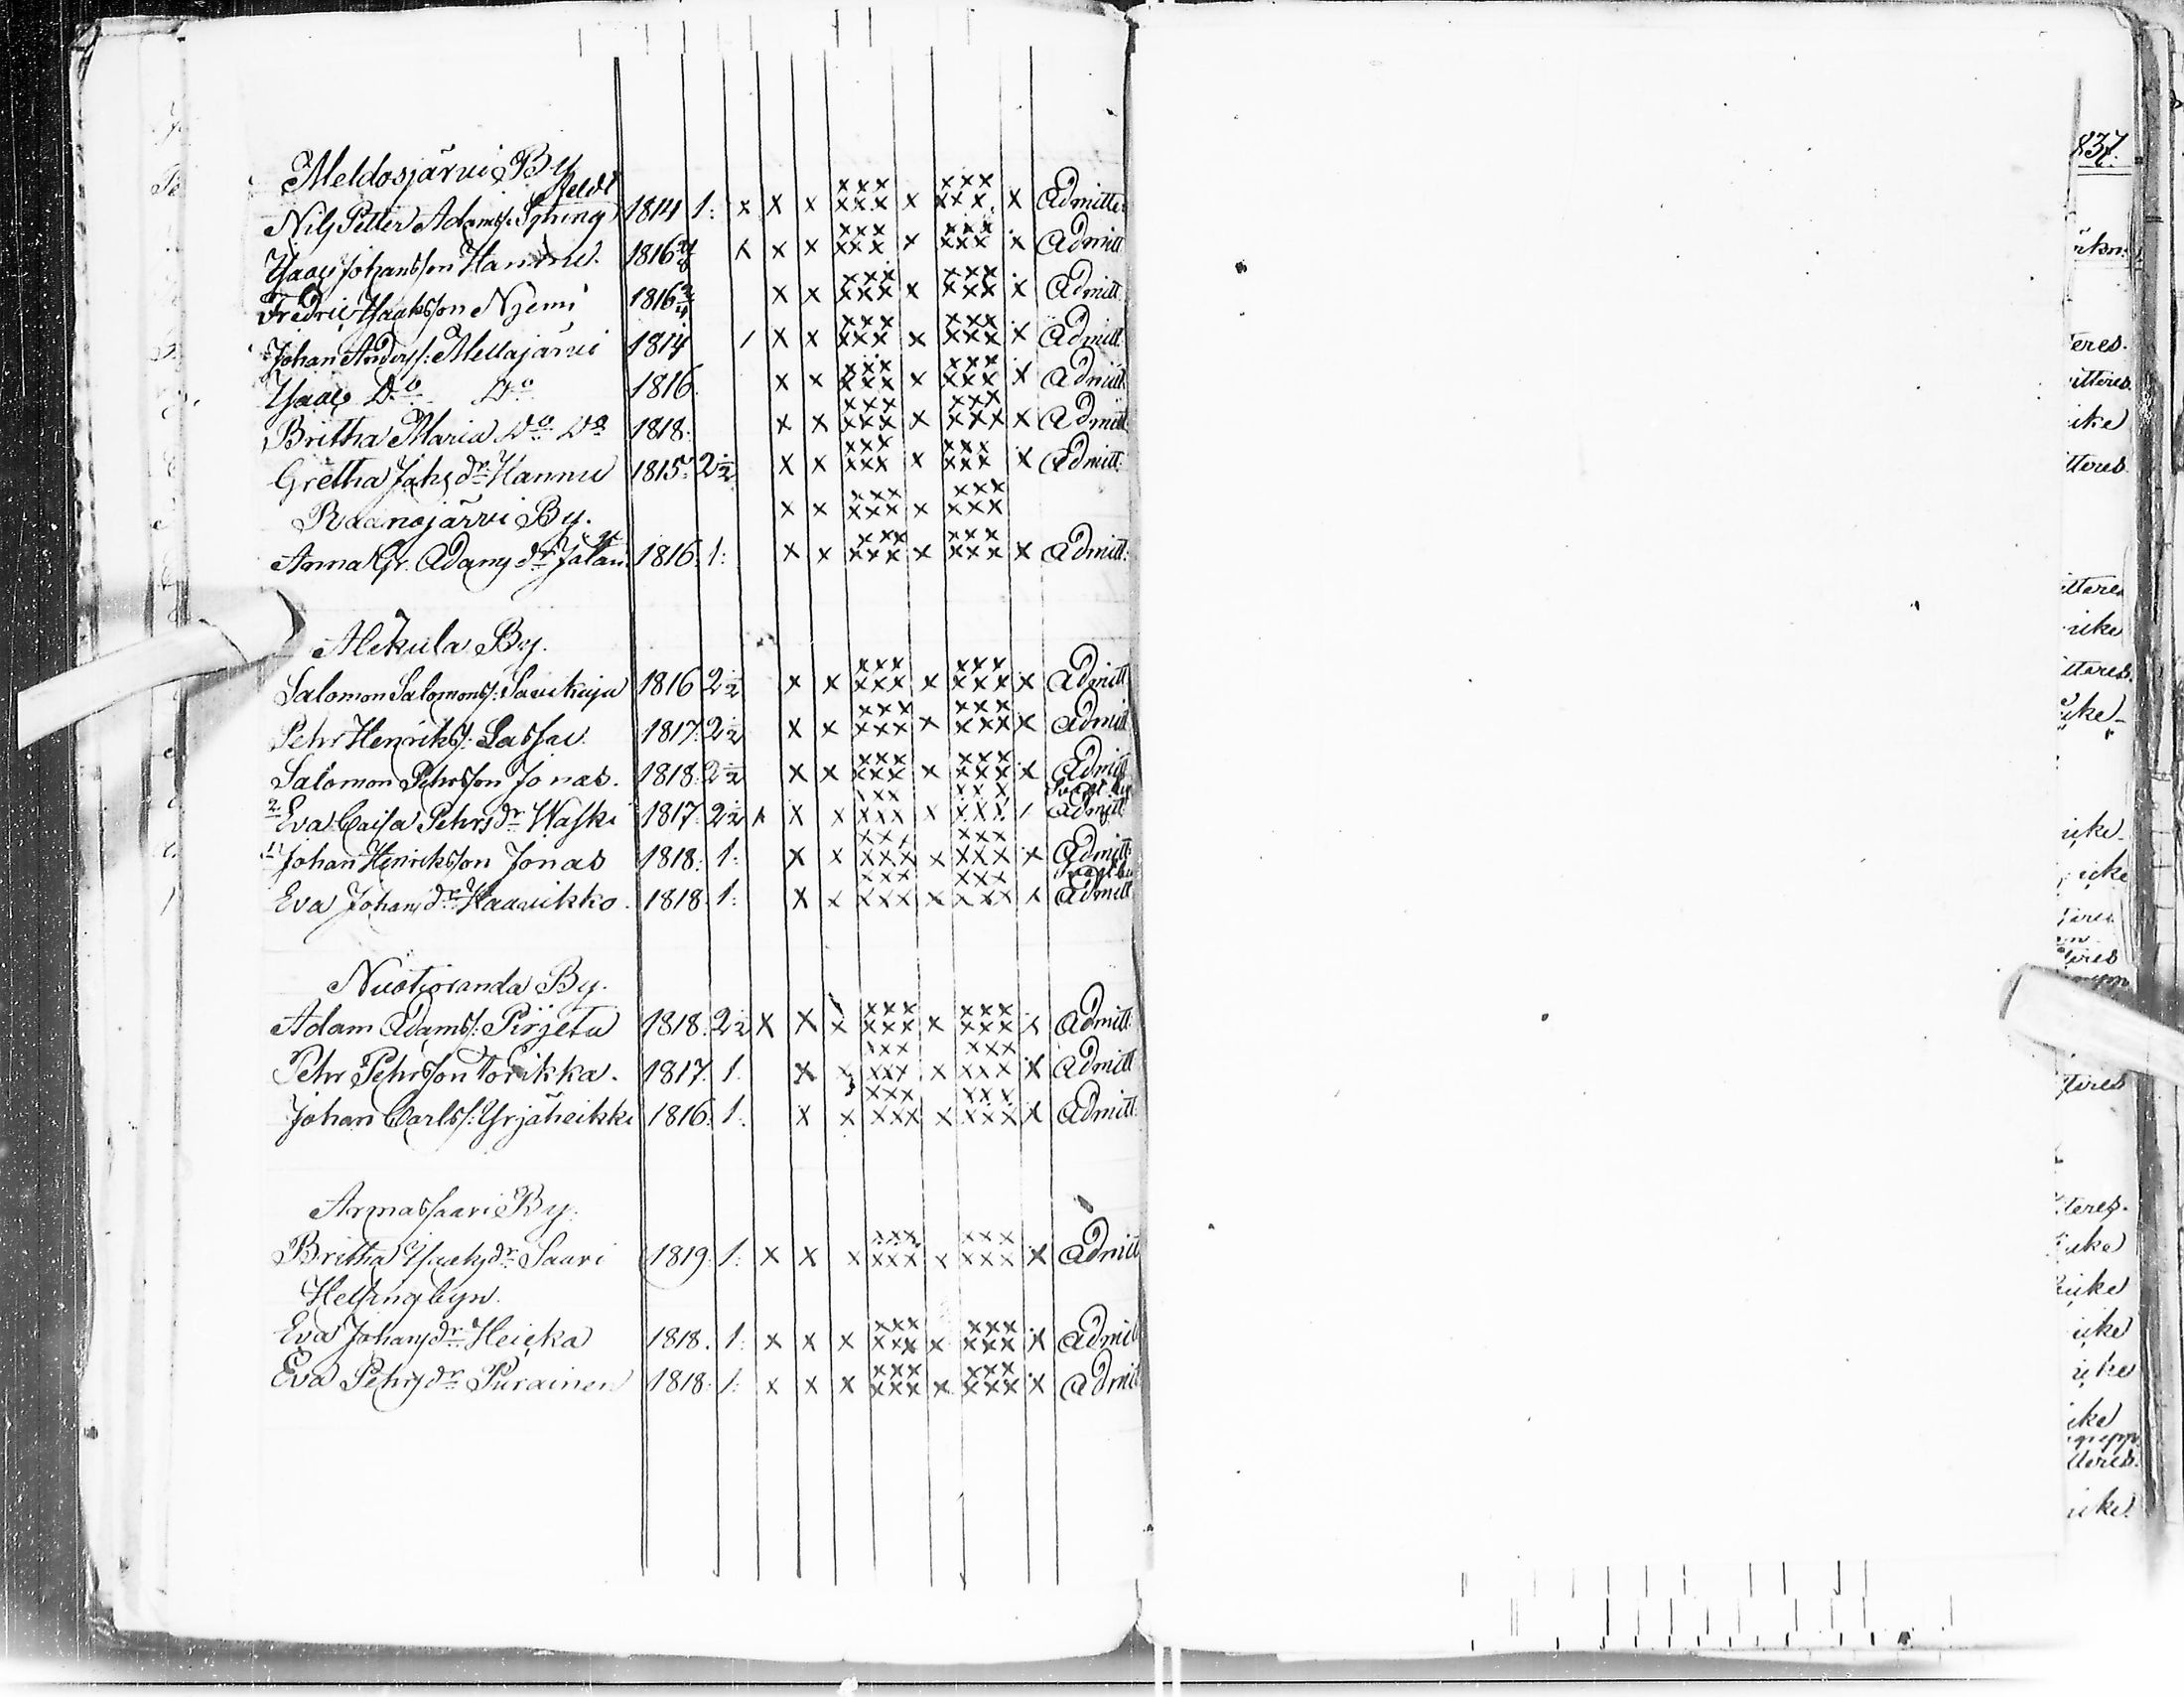 Meldosjärvi By
feldt
Nils Petter Adamss: Spring 1814 1: x x x xxx xxx x xxx xxx x Admitte
Isaac Johansson Hannu. 1816 x x x xxx xxx x xxx xxx x Admitt:
Fredric Isaksson Niemi 1816 x x xxx xxx x xxx xxx x Admitt:
Johan Anderss: Mellajärvi 1814 / x x xxx xxx x xxx xxx x Admitt
Isaac Do Do 1816 x x xxx xxx x xxx xxx x Admitt
Britha Maria Do Do 1818: x x xxx xxx x xxx xxx x Admitt
Gretha Johsdr Hannu 1815: 2 1/2 x x xxx xxx x xxx xxx x Admitt:
Raanojärvi By. x x xxx xxx x xxx xxx
Anna Gr. Adamsdr 1816: 1: x x xxx xxx x xxx xxx x Admitt:
Alekula By.
Salomon Salomonss: Savikuja 1816 2 1/2 x x xxx xxx x xxx xxx x Admitt
Pehr Henrikss: Lassai. 1817: 2 1/2 x x xxx xxx x xxx xxx x Admitt
Salomon Pehrsson Jonas. 1818: 2 1/2 x x xxx xxx x xxx xxx x Admitt
2 Eva Caisa Pehrsdr Waski 1817: 2 1/2 x x x xxx xxx x xxx xxx / Admitt
1 Johan Henriksson Jonas 1818: 1: x x xxx xxx x xxx xxx x Admitt:
Eva Johansdr Haavikko. 1818: 1: x x xxx xxx x xxx xxx x Admitt
Nuotioranda By.
Adam Adamss: Pirjeta 1818: 2 1/2 x x x xxx xxx x xxx xxx x Admitt:
Pehr Pehrsson Torikka. 1817: 1. x x xxx xxx x xxx xxx x Admitt
Johan Carlss: Yrjäheikki 1816: 1: x x xxx xxx x xxx xxx x Admitt:
Armassaari By.
Britha Isaksdr Saari 1819: 1: x x x xxx xxx x xxx xxx x Admitt
Helsingbyn.
Eva Johansdr Heicka 1818. 1: x x x xxx xxx x xxx xxx x Admit
Eva Pehrsdr Purainen 1818: 1: x x x xxx xxx x xxx xxx x Admit
837.